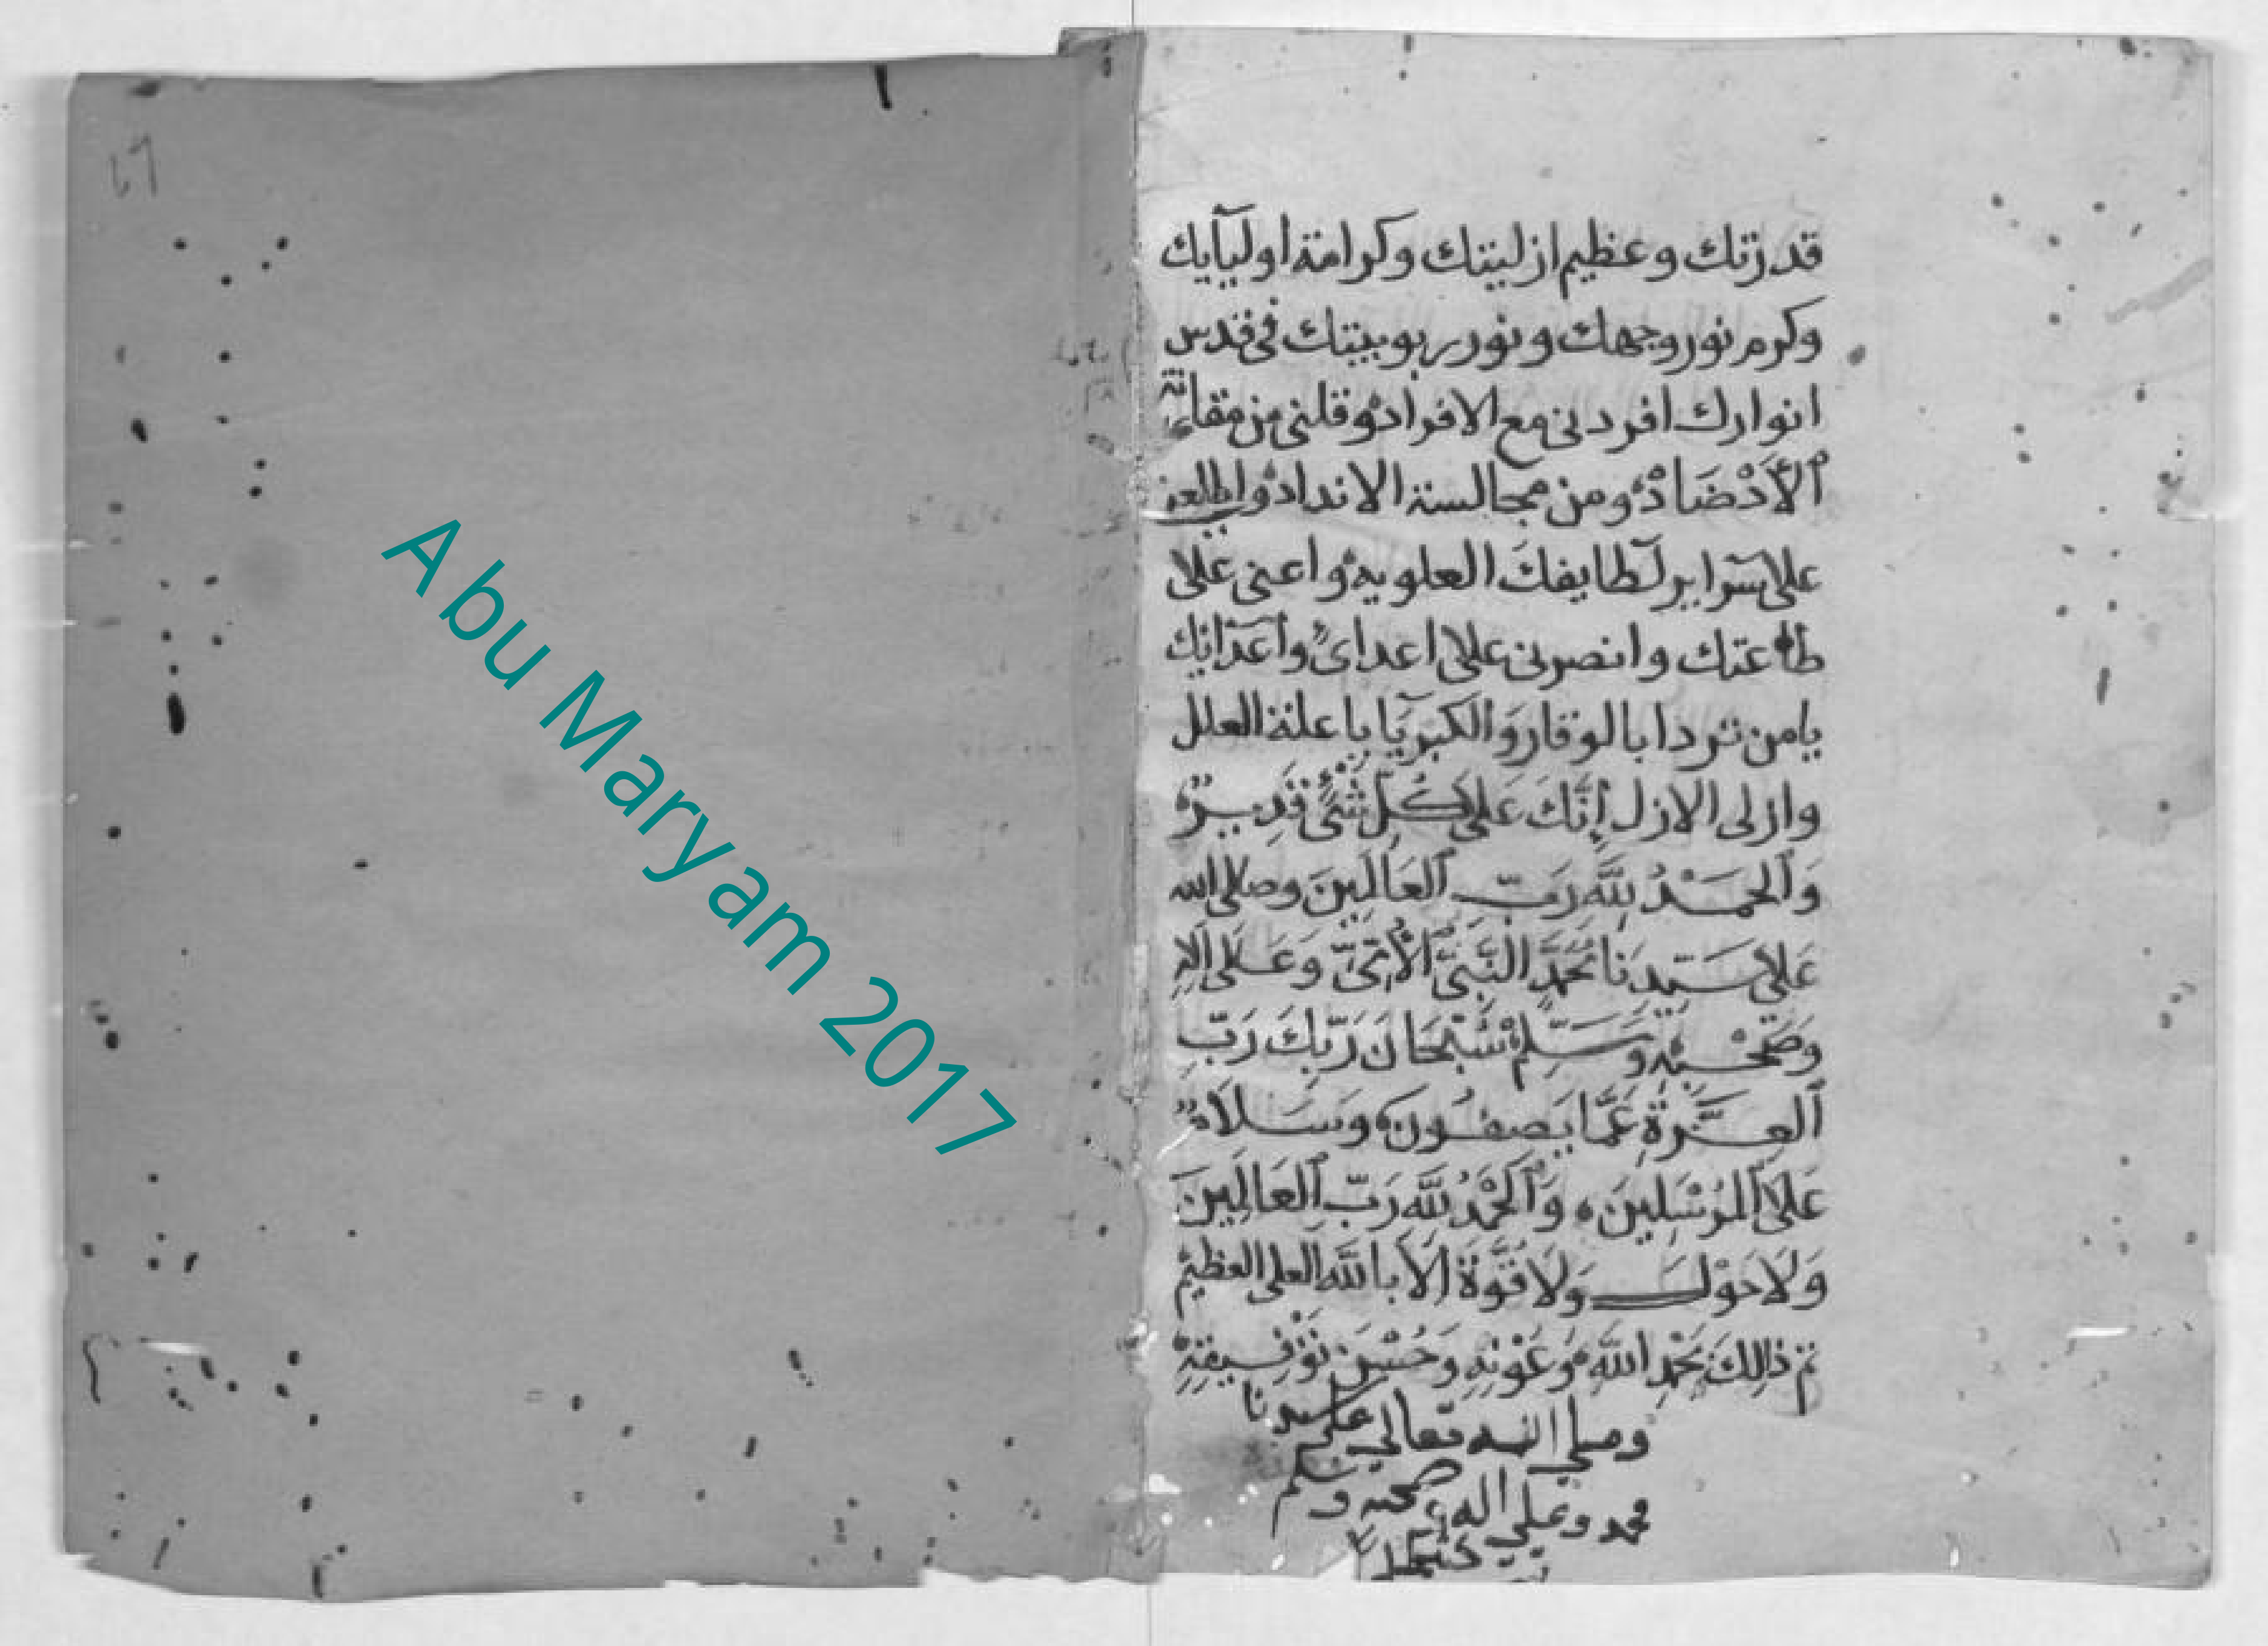 قدرتك وعظيم ازليتك وكرامة اوليآيك
وكرم نور وجهك ونور ربوبيتك في قدس
انوارك افردني مع الافراد وقلني من
الأَدْضَادْ ومن مجالسة الانداد واطلعني
على سرآير لطايفك العلويه واعني على
طاعتك وانصرني على اعداى وأعدائك
يامن تردا بالوقار وَالكبريَآ يا علة العلل
وازلى الازل إِنَّكَ عَلَى كُلِّ شَىْءٍ قَدِيرٌ
وَالحَمْدُ لِلَّهِ رَبِّ العَالَمِينَ وصلى الله
عَلى سَيِّدِنَا مُحَمَّدٍ النَّبِىِّ الأُمِّىِّ وَعَلَى آلِهِ
وَصَحْبِهِ وَسَلِّمْ سُبْحَانَ رَبِّكَ رَبِّ
العِزَّةِ عَمَّا يَصِفُونَ وَسَلَامٌ
عَلَى المُرْسَلِينَ وَالحَمْدُ لِلَّهِ رَبِّ العَالَمِينَ
وَلَا حَوْلَ وَلَا قُوَّةَ إِلَّا بِاللَّهِ العلى العظيم
تم ذَلِكَ بِحَمْدِ اللَّهِ وَعَوْنِهِ وَحُسْنِ تَوْفِيقِهِ
وصلي الله تعالي على سيدنا
محمد وعلي اله وصحبه وسلم
Abu Maryam 2017